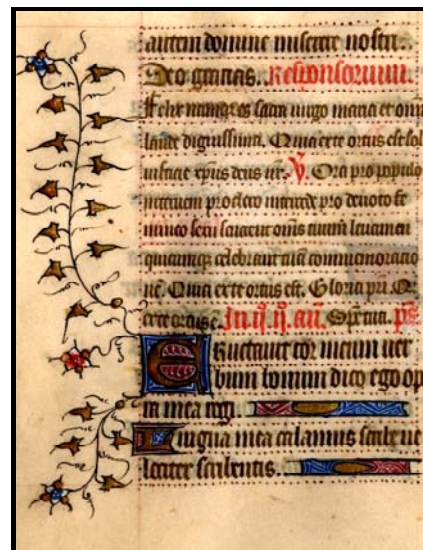 autem domine miserere nostri.
Deo gracias. Responsorium.
Felix namq; es sacra virgo maria et omni
laude dignissima. Quia ex te ortus est sol
iusticie xp̄us deus nr̄. V. Ora pro populo
interueni pro clero intercede pro deuoto fe
mineo sexu senciant om̄s tuum leuamen
quicumq; celebrant tuā commemoracio
nē. Quia ex te ortus est. Gloria pr̄i. Q̄
ex te ortus ē. an̄. Sp̄e tua. ps̄
Eructauit cor meum uer
bum bonum dico ego op
ra mea regi.
Lingua mea calamus scribe ue
lociter scribentis.